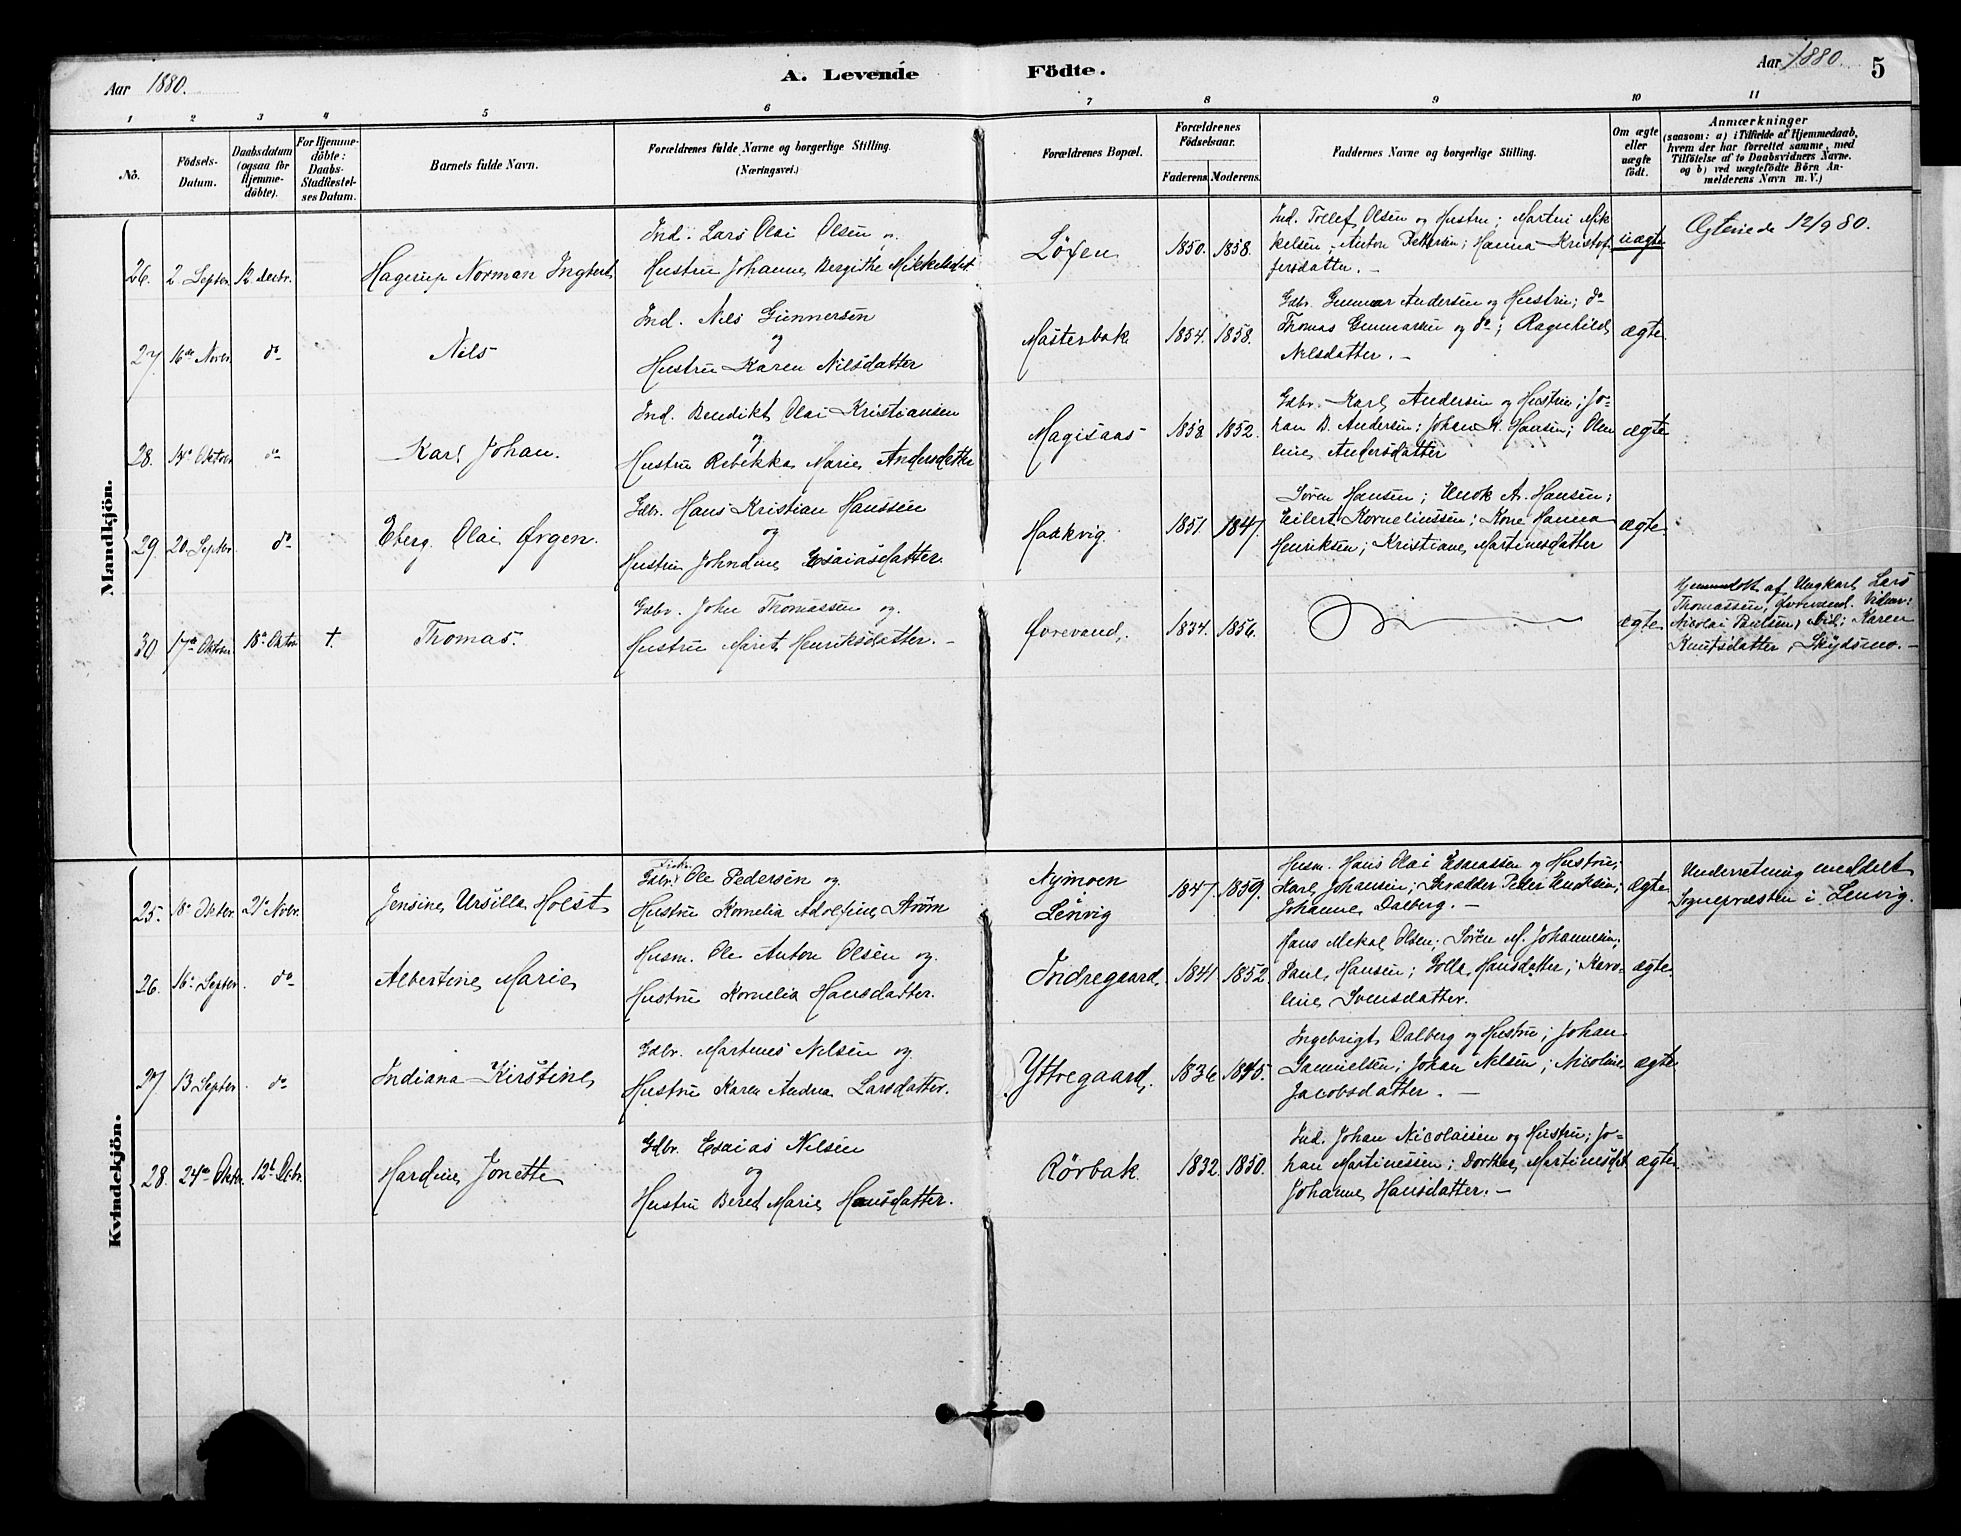 Aar 1880.
A. Levende Födte.
Aar 1880.
5
1 2 3 4 5 6 7 8 9 10 11
No.
Födsels-
Datum.
Daabsdatum
(ogsaa for
Hjemme-
döbte).
For Hjemme-
döbte:
Daabs-
Stadfæstel-
ses Datum.
Barnets fulde Navn.
Forældrenes fulde Navne og borgerlige Stilling.
(Næringsvei.)
Forældrenes Bopæl.
Forældrenes
Födselsaar.
Faderens. Moderens.
Faddernes Navne og borgerlige Stilling.
Om ægte
eller
uægte
födt.
Anmærkninger
(saasom: a) i Tilfælde af Hjemmedaab,
hvem der har forrettet samme, med
Tilföielse af to Daabsvidners Navne.
og b) ved uægtefödte Börn An-
melderens Navn m. V.)
Mandkjön.
26. 2 Septbr. 12 Decbr.
Hagerup Norman Ingbert
Ind. Lars Olai Olsen og
Hustru Johanne Bergithe Mikkelsdat
Løxen 1850. 1858.
Ind. Tollef Olsen og Hustru; Martin Mik
kelsen; Anton Pettersen; Hanna Kristof
fersdatter. –
uægte
Ægteviede 12/9 80.
27. 16de Novbr. do
Nils
Ind. Nils Gunnersen
og
Hustru Karen Nilsdatter
Masterbak 1854. 1858.
Gdbr. Gunnar Andersen og Hustru; do
Thomas Gunnarsen og do; Ragnhild
Nilsdatter. –
ægte
28. 14de Oktobr do
Karl Johan.
Ind. Bendikt Olai Kristiansen
og
Hustru Rebekka Marie Andersdatter
Magisaas 1858 1852.
Gdbr. Karl Andersen og Hustru; Jo-
han B. Andersen; Johan K. Hansen; Olen
line Andersdatter
ægte
29. 20 Septbr. do
Eberg Olai Ørgen.
Gdbr. Hans Kristian Hanssen
og
Hustru Johndine Esaiasdatter.
Haakvig. 1851. 1847.
Søren Hansen; Enok A. Hansen;
Eilert Korneliussen; Kone Hanna
Henriksen; Kristiane Martinesdatter
ægte.
30 17de Oktober 18de Oktobr †
Thomas.
Gdbr. John Thomassen og
Hustru Marit Henriksdatter. –
Øvrevand. 1834. 1856.
ægte
Hjemmedøbt af Ungkarl Lars
Thomassen, Øvrevand. Vidner:
Nicolai Paulsen, ibid; Karen
Knutsdatter, Skydsmo. –
Kvindekjön.
25. 18de Oktbr. 21de Novbr.
Jensine Ursilla Holst
Fisker
Gdbr. Ole Pedersen og
Hustru Kornelia Adolfine Strøm
Nymoen
Lenvig
1847. 1859.
Husm. Hans Olai Esaiassen og Hustru;
Karl Johansen; Skrædder Peder Enoksen;
Johanne Dalberg. –
ægte
Underretning meddelt
Sognepræsten i Lenvig.
26. 16de Septbr. do
Albertine Marie
Husm. Ole Anton Olsen og
Hustru Kornelia Hansdatter.
Indregaard. 1841 1852.
Hans Mekal Olsen; Søren M. Johannesen;
Paul Hansen; Golla Hansdatter; Karo-
line Svensdatter.
ægte.
27. 13 Septbr. do
Indiana Kirstine
Gdbr. Martines Nilsen og
Hustru Karen Andrea Larsdatter.
Yttregaard. 1836 1845.
Ingebrigt Dalberg og Hustru; Johan
Danielsen; Johan Nilsen; Nicoline
Jacobsdatter. –
ægte
28. 24de Oktbr. 12te Decbr.
Hardine Jonette
Gdbr. Esaias Nilsen
og
Hustru Beret Marie Hansdatter.
Rörbak 1832. 1850.
Ind. Johan Nicolaisen og Hustru; Jo-
han Martinessen; Dorthea Martinesdat
Johanne Hansdatter. –
ægte